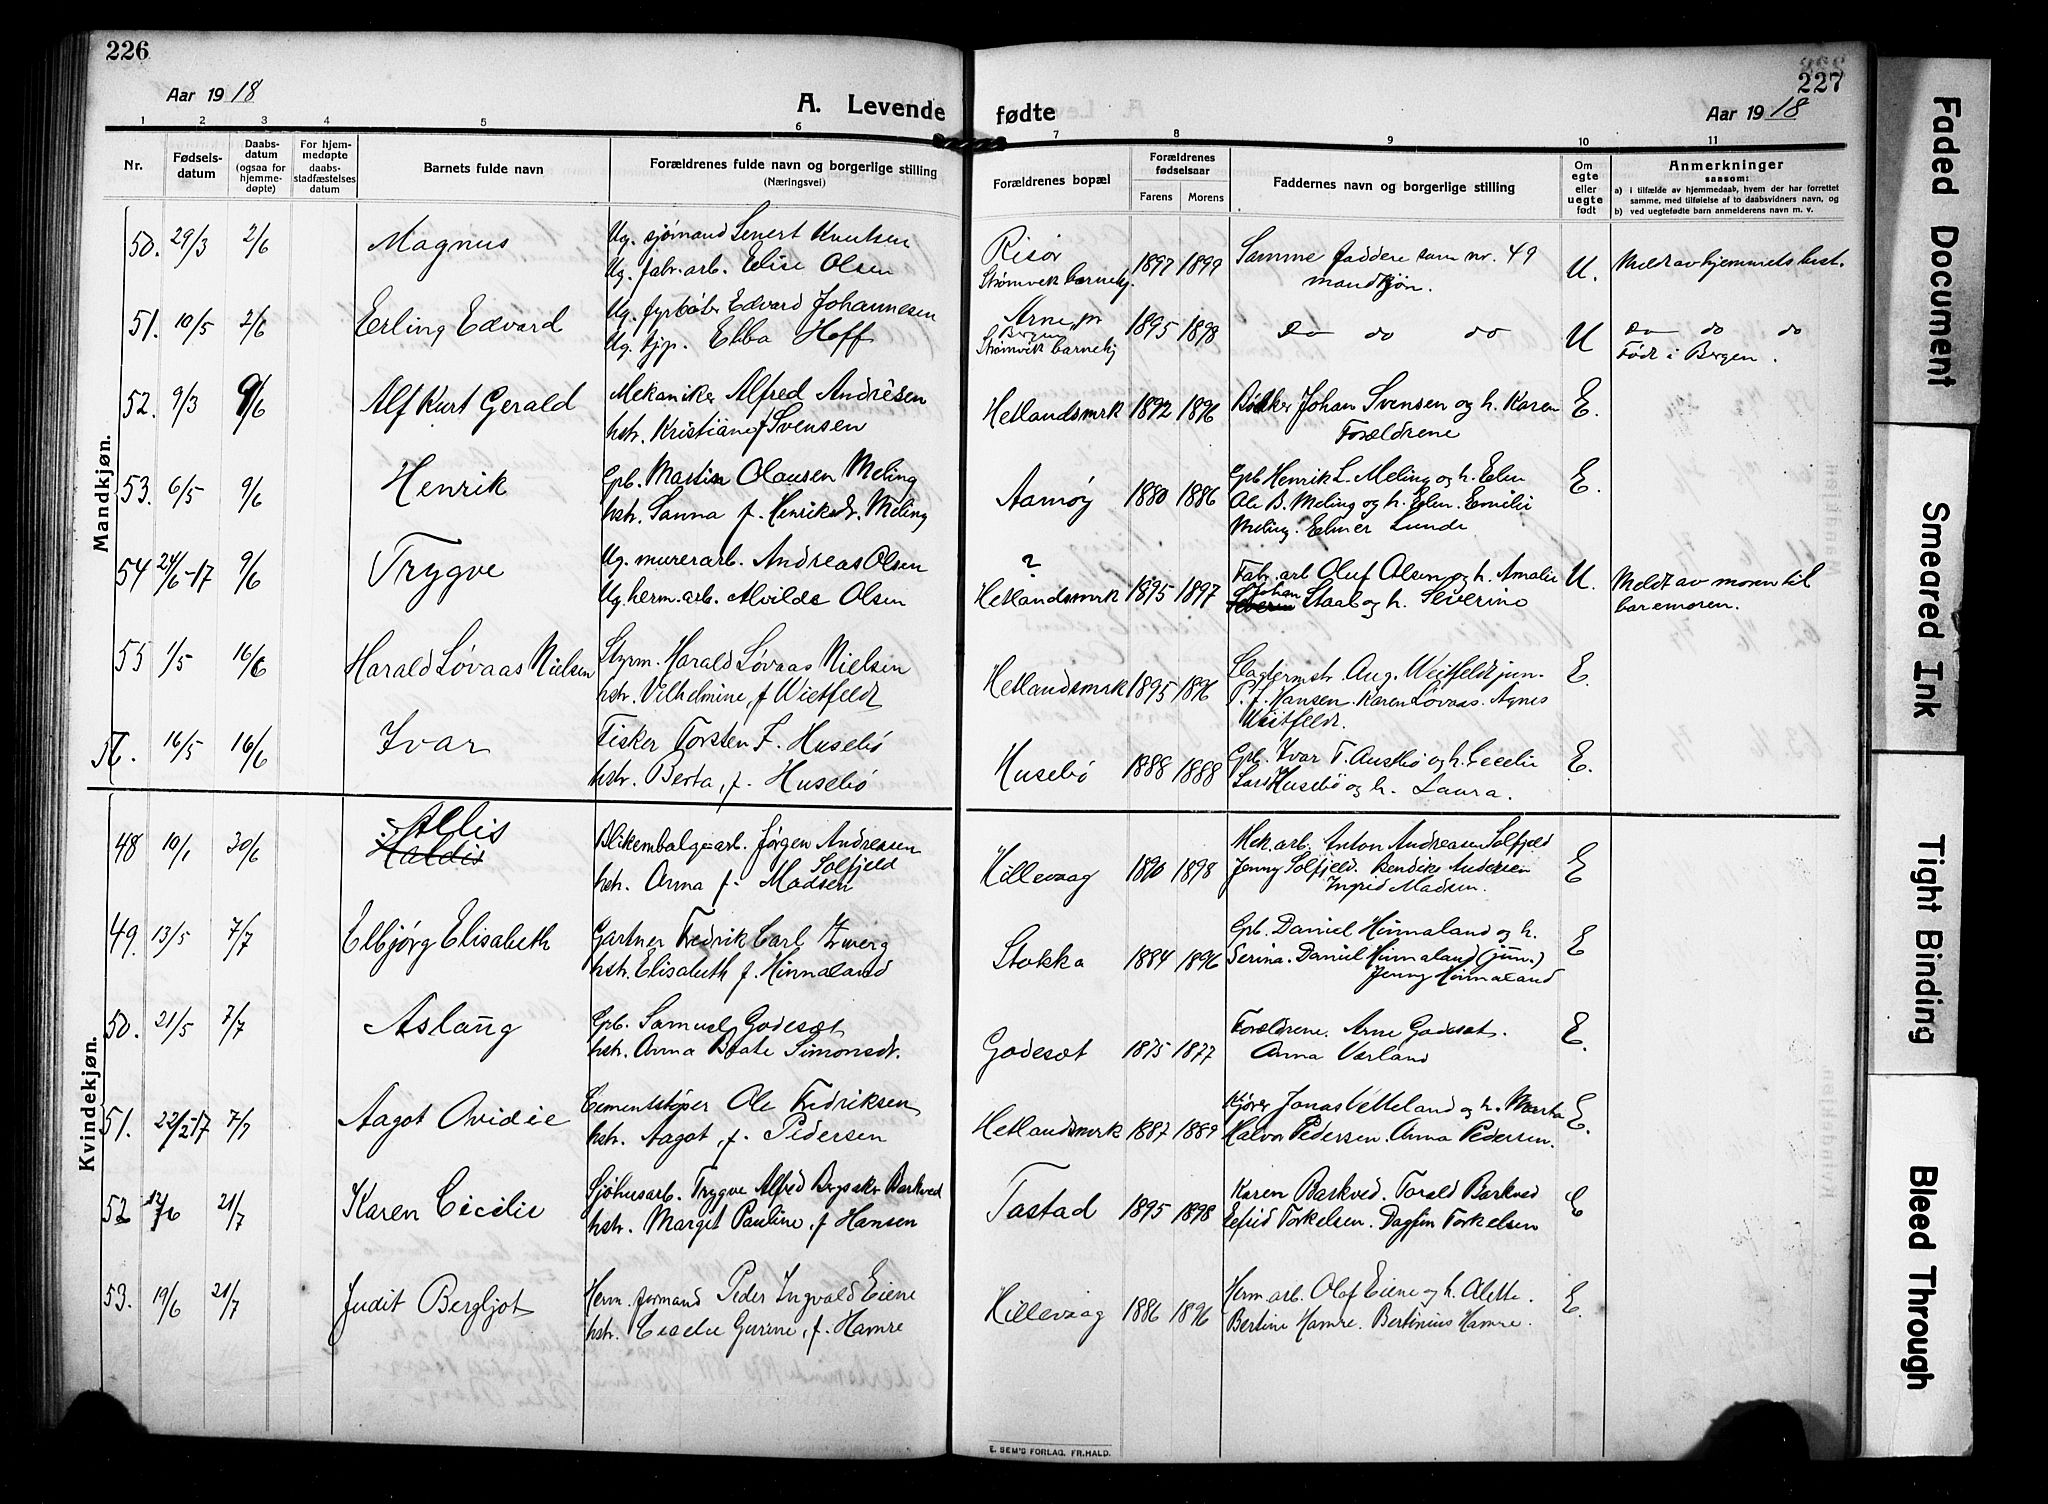 226
Aar 1918
A. Levende
1 2 3 4 5 6
Nr. Fødselsdatum Daabsdatum (ogsaa for hjemmedøpte) For hjemmedøpte daabsstadfæstelses datum Barnets fulde navn Forældrenes fulde navn og borgerlige stilling (Næringsvei)
Mandkjøn.
50. 29/3 2/6 Magnus Ug. sjømand Lenert Knutsen
Ug. fabr. arb. Elise Olsen
51. 10/5 2/6 Erling Edvard Ug. fyrbøter Edvard Johannesen
Ug. tjp. Ebba Hoff
52. 9/3 9/6 Alf Kurt Gerald Mekaniker Alfred Andrésen
hstr. Kristiane f. Svensen
53. 6/5 9/6 Henrik Gpb. Martin Olausen Meling
hstr. Sanna f. Henriksdr. Meling
54 24/6-17 9/6 Trygve Ug. murerarb. Andreas Olsen
Ug. herm. arb. Alvilde Olsen
55 1/5 16/6 Harald Løvaas Nielsen Styrm. Harald Løvaas Nielsen
hstr. Vilhelmine, f. Wietfeldt
56. 16/5 16/6 Ivar Fisker Torsten F. Husebø
hstr. Berta, f. Husebø
Kvindekjøn.
48 10/1 30/6 Allis
Haldis Blikembalage arb. Jørgen Andressen Solfjeld
hstr. Anna f. Madsen
49. 13/5 7/7 Elbjørg Elisabeth Gartner Fredrik Carl Zwerg
hstr. Elisabeth f. Hinnaland
50. 21/5 7/7 Aslaug Gpb. Samuel Godesæt
hstr. Anna Beate Simonsdr.
51. 22/12-17 7/7 Aagot Ovidie Cementstøper Ole Fredriksen
hstr. Aagot, f. Pedersen
52 12/6 21/7 Karen Cecilie Sjøhusarb. Trygve Alfred Bergsaker Barkved
hstr. Margit Pauline, f. Hansen
53. 19/6 21/7 Judit Bergljot Herm. formand Peder Ingvald Eiene
hstr. Cecelie Gurine, f. Hamre
227
Aar 1918
fødte
7 8 9 10 11
Forældrenes bopæl Forældrenes fødselsaar Farens Morens Faddernes navn og borgerlige stilling Om egte eller uegte født Anmerkninger
saasom:
a) i tilfælde av hjemmedaab, hvem der har forrettet samme, med tilføielse af to daabsvidners navn, og
b) ved uegtefødte barn anmelderens navn m. v.
Risør
Strømvik barnehj. 1897 1899 Samme faddere som nr. 49
mandkjøn. U. Meldt av hjemmets best.
Arne, pr Bergen
Strømvik barnehj 1895 1898 Do do do U Do do do
Født i Bergen.
Hetlandsmrk 1892 1896 Bøkker Johan Svensen og h. Karen
Forældrene E.
Aamøy 1880 1886 Gpb Henrik L. Meling og h. Elen
Ole B. Meling og h. Elen. Emilie
Meling. Elmer Lunde E.
?
Hetlandsmrk 1895 1897 Fabr. arb Oluf Olsen og h. Amalie
Johan Staal og h. Severine U. Meldt av moren til
baremoren.
Hetlandsmrk 1895 1896 Slagtermstr. Aug. Weitfeldt jun.
P. J. Hansen. Karen Løvaas. Agnes
Weitfeldt. E.
Husebø 1888 1888 Gpb. Ivar T. Austbø og h. Cecelie
Lars Husebø og h. Laura. E.
Hillevaag 1890 1898 Mek. arb. Anton Andreasen Solfjeld
Jenny Solfjeld. Bendikte Andersen
Ingrid Madsen. E
Stokka 1884 1896 Gpb. Daniel Hinnaland og h.
Serina. Daniel Hinnaland (jun.)
Jenny Hinnaland E
Godesæt 1875 1877 Forældrene. Arne Godesæt.
Anna Varland E.
Hetlandsmrk 1887 1889 Kjører Jonas Vetteland og h. Marta
Halvor Pedersen. Anna Pedersen. E.
Tastad 1895 1898 Karen Barkved. Torald Barkved
Elfrid Torkelsen. Dagfin Torkelsen E
Hillevaag 1886 1896 Herm. arb. Olaf Eiene og h. Alette.
Bertine Hamre. Bertinius Hamre. E.
E. SEM'S FORLAG, FR.HALD.
Faded Document
Smeared Ink
Tight Binding
Bleed Through